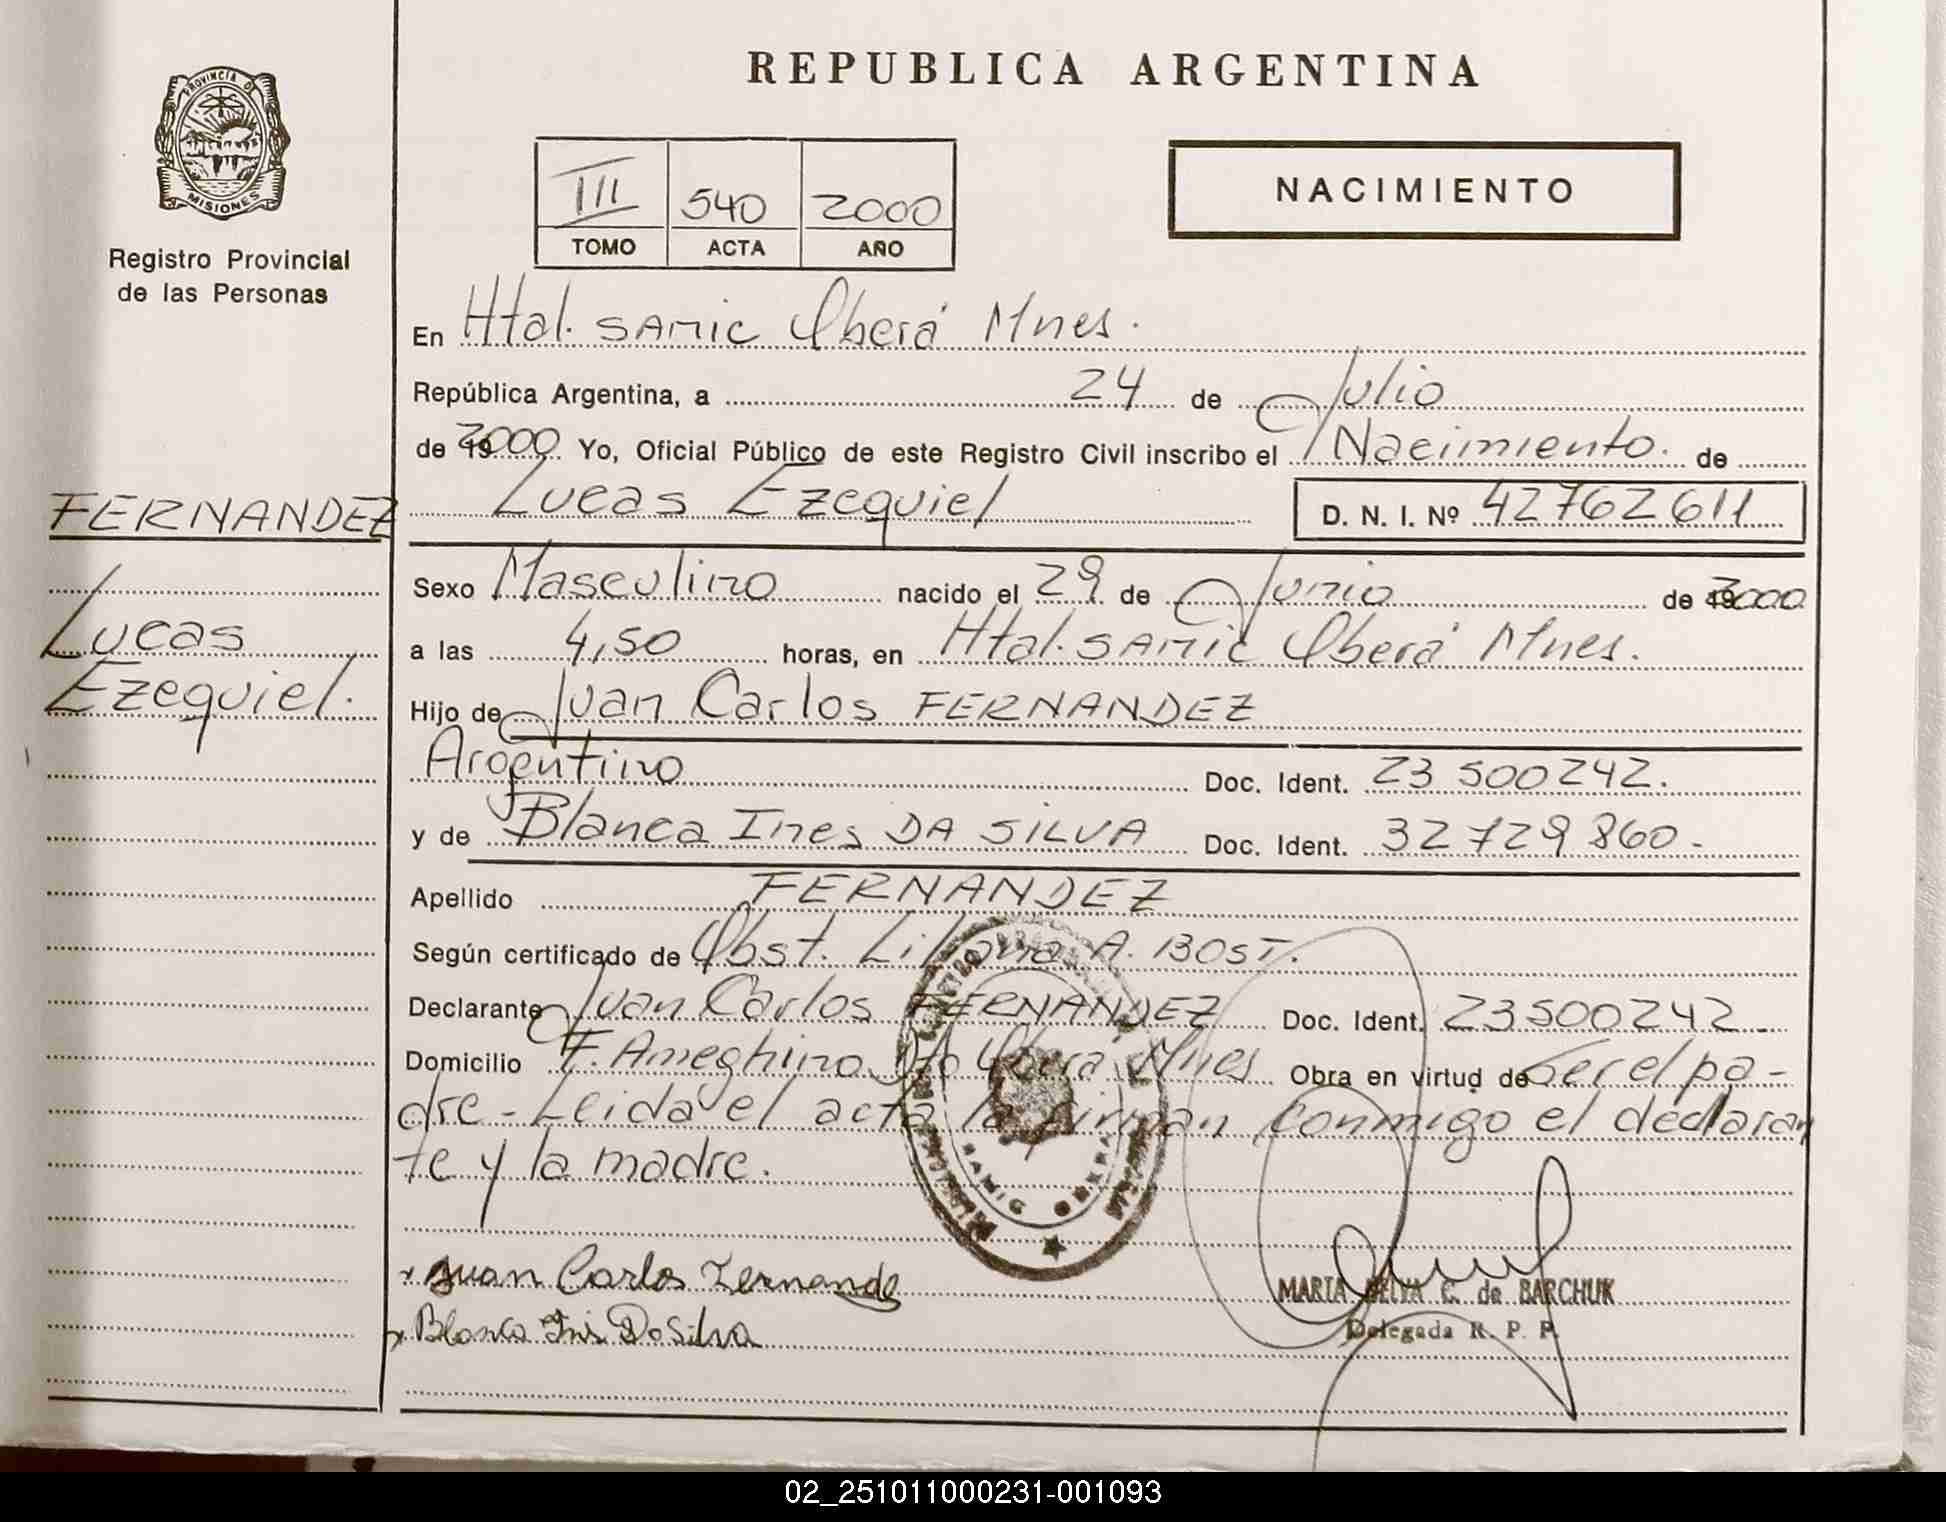 REPUBLICA ARGENTINA
PROVINCIA DE
MISIONES
Registro Provincial
de las Personas
III 540 2000
TOMO ACTA AÑO
NACIMIENTO
En Htal. SAMIC Oberá Mnes.
República Argentina, a 24 de Julio
de 2000 Yo, Oficial Público de este Registro Civil inscribo el Nacimiento. de
Lucas Ezequiel D. N. I. Nº 42762611
FERNANDEZ
Lucas
Ezequiel.
Sexo Masculino nacido el 29 de Junio de 2000
a las 4,50 horas, en Htal. SAMIC Oberá Mnes.
Hijo de Juan Carlos FERNANDEZ
Argentino Doc. Ident. 23 500242.
y de Blanca Ines DA SILVA Doc. Ident. 32 729 860-
Apellido FERNANDEZ
Según certificado de Obst. Liliana A. BOST.
Declarante Juan Carlos FERNANDEZ Doc. Ident. 23500242-
Domicilio F. Ameghino Oberá Mnes Obra en virtud de Ser el pa-
dre - Leida el acta la firman conmigo el declaran
te y la madre.
Juan Carlos Fernande
Blanca Inis Da Silva
MARIA DELYA C. de BARCHUK
Delegada R. P. P.
02_251011000231-001093